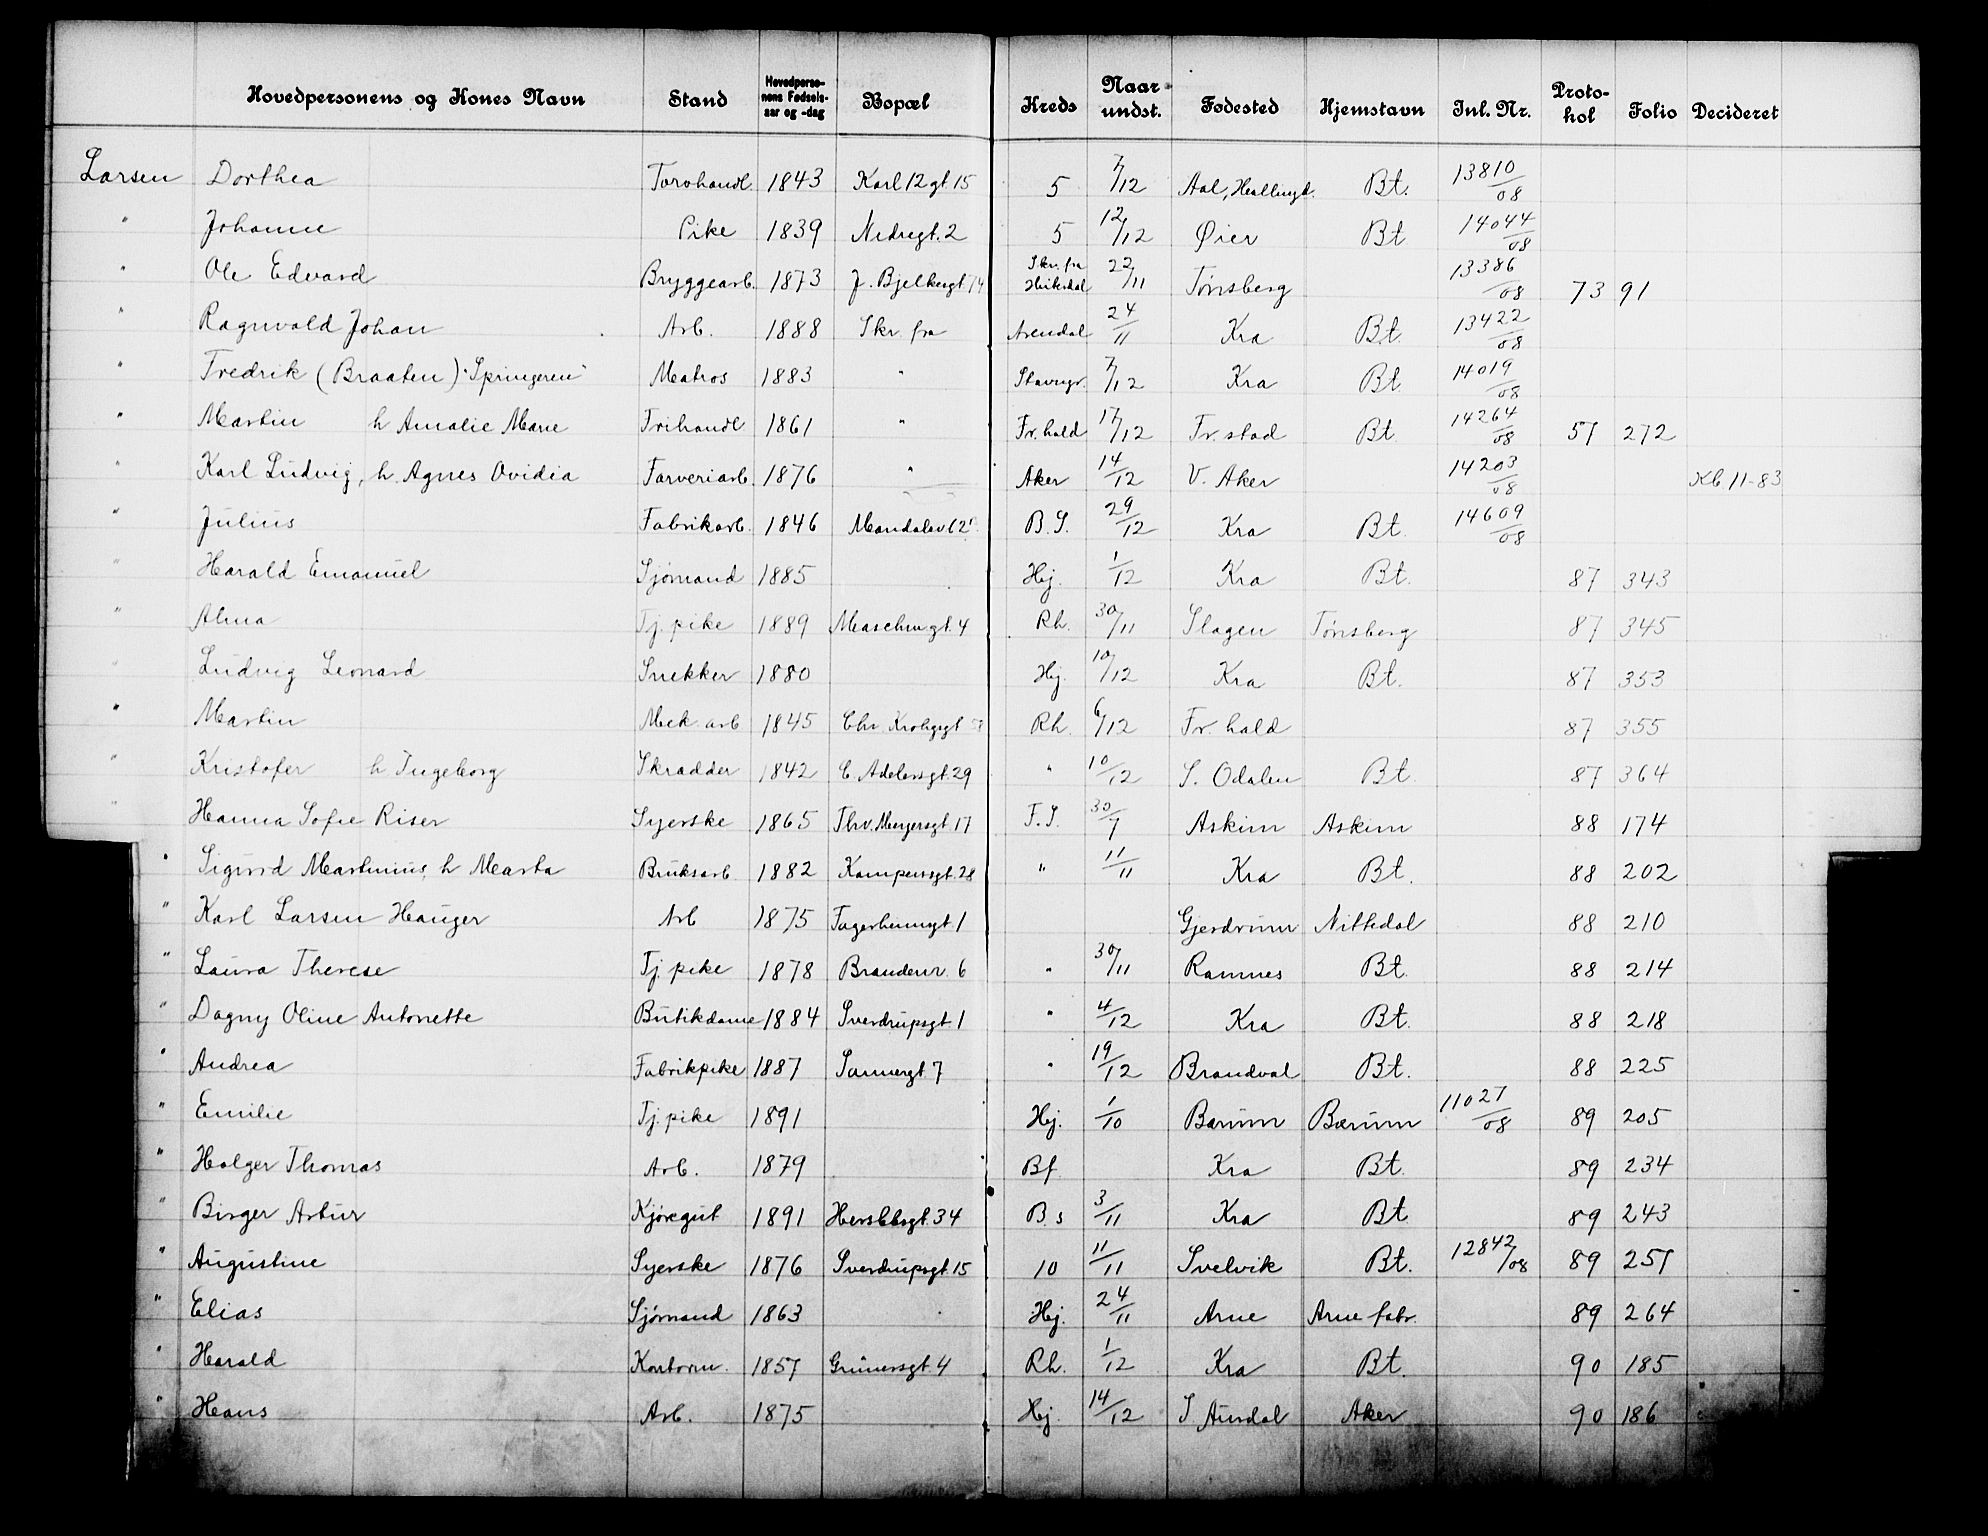 Hovedpersonens og Kones Navn Stand Hovedperso-nens Fødsels-aar og -dag Bopæl Kreds Naar undst. Fødested Hjemstavn Inl. Nr. Proto-kol Folio Decideret
Larsen Dorthea Torvhandl. 1843 Karl 12 gt. 15 5 7/12 Aal, Hallingd. Bt. 13810/08
" Johanne Pike 1839 Nedregt. 2 5 12/12 Øier Bt 14044/08
" Ole Edvard Bryggearb. 1873 J. Bjelkesgt. 74 Skr. fra 22/11 Tønsberg 13386/08 73 91
" Ragnvald Johan Arb. 1888 Skr. fra Arendal 24/11 Kra Bt. 13422/08
" Fredrik (Braaten) "Springeren" Matros 1883 " Stavngr. 7/12 Kra Bt 14019/08
" Martin h Amalie Marie Frihandl 1861 " Fr. hald 17/12 Fr. stad Bt. 14264/08 57 272
" Karl Ludvig, h. Agnes Ovidia Farveriarb. 1876 " Aker 14/12 V. Aker 14203/08 Kb. 11-83
" Julius Fabrikarb. 1846 B. S. 29/12 Kra Bt. 14609/08
" Harald Emanuel Sjømand 1885 Hej. 1/12 Kra Bt. 87 343
" Alma Tj. pike 1889 Maschmgt. 4 Rh. 30/11 Slagen Tønsberg 87 345
" Ludvig Leonard Snekker 1880 Hej. 10/12 Kra Bt. 87 353
" Martin Mek. arb 1845 Chr. Krohgsgt Rh. 6/12 Fr. hald 87 355
" Kristofer h Ingeborg Skradder 1842 C. Adelersgt. 29 " 10/12 S. Odalen Bt. 87 364
" Hanna Sofie Riser Syerske 1865 Thv. Meyersgt. 17 F. S. 30/7 Askim Askim 88 174
" Sigurd Martinius, h Marta Bruksarb. 1882 Kampensgt. 28 " 11/11 Kra Bt. 88 202
" Karl Larsen Hauger Arb 1875 Fagerheimgt. 1 Gjerdrum Nittedal 88 210
" Laura Therese Tj. pike 1878 Brandenr. 6 " 30/11 Ramnes Bt. 88 214
" Dagny Oline Antonette Butikdame 1884 Sverdrupsgt. 1 " 4/12 Kra Bt. 88 218
" Andrea Fabrikpike 1887 Sannergt 7 " 19/12 Brandval Bt. 88 225
" Emilie Tj. pike 1891 Hej. 1/10 Barum Bærum 11027/08 89 205
" Holger Thomas Arb. 1879 Bf. Kra Bt. 89 234
" Birger Artur Kjøregut 1891 Herslebsgt. 34 B. s 3/11 Kra Bt 89 243
" Augustine Syerske 1876 Sverdrupsgt. 15 10 11/11 Svelvik Bt. 12842/08 89 257
" Elias Sjømand 1863 Hej. 24/11 Arne Arne fabr. 89 264
" Harald Kontorm. 1857 Grünersgt. 4 Rh. 1/12 Kra Bt. 90 185
" Hans Arb. 1875 Hej. 14/12 S Aurdal Aker 90 186